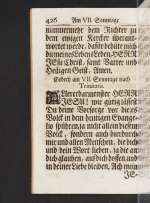 426 Am VII. Sonntage
nimmermehr dem Richter zu
dem ewigen Kercker überant-
wortet werde, dafür behüte mich
du meines Lebens Leben, HERR
JESu Christ, samt Vatter und
Heiligen Geist. Amen.
Gebeth am VII. Sonntage nach
Trinitatis.
Allerbarmenster HERR
JESU! wie gütig lässest
Du deine Vorsorge vor dieses
Volk in dem heutigen Evange-
lio spühren, ja nicht allein diesem
Volk, sondern auch
mir und allen Menschen, die dich
und dein Wort lieben, ja die an
dich glauben, auf dich hoffen und
in deiner Liebe bleiben. Ach mein
JE-